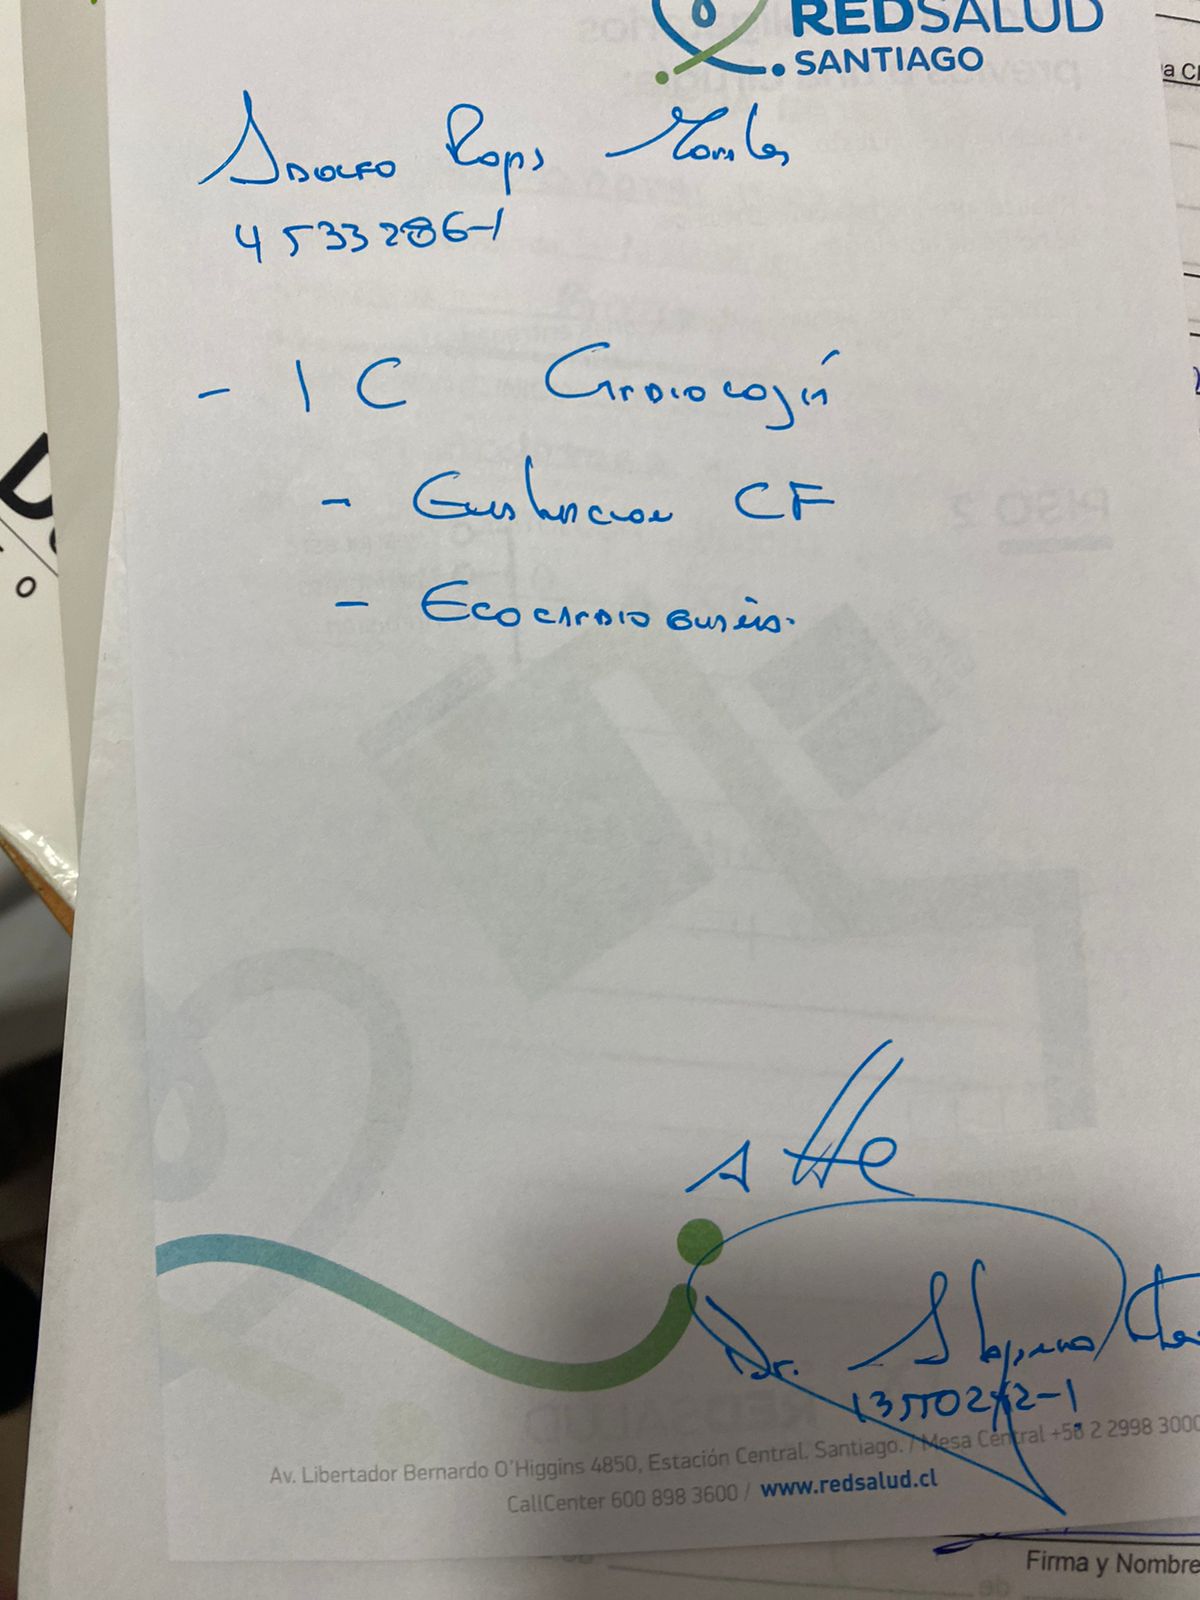 REDSALUD
SANTIAGO
Adolfo Rojas Morales
4533286-1
- IC Cardiología
- Evaluacion CF
- Ecocardio
Atte
Dr.
Av. Libertador Bernardo O'Higgins 4850, Estación Central. Santiago. / Mesa Central +56 2 2998 3000
CallCenter 600 898 3600 / www.redsalud.cl
Firma y Nombre
PISO 2